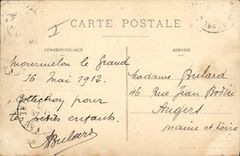 CARTE POSTALE
CORRESPONDANCE
ADRESSE
Mourmelon le Grand
16 Mai 1912.
Collection pour
les petits enfants.
Madame Bulard
46 Rue Jean Bodin
Angers
Maine et Loire